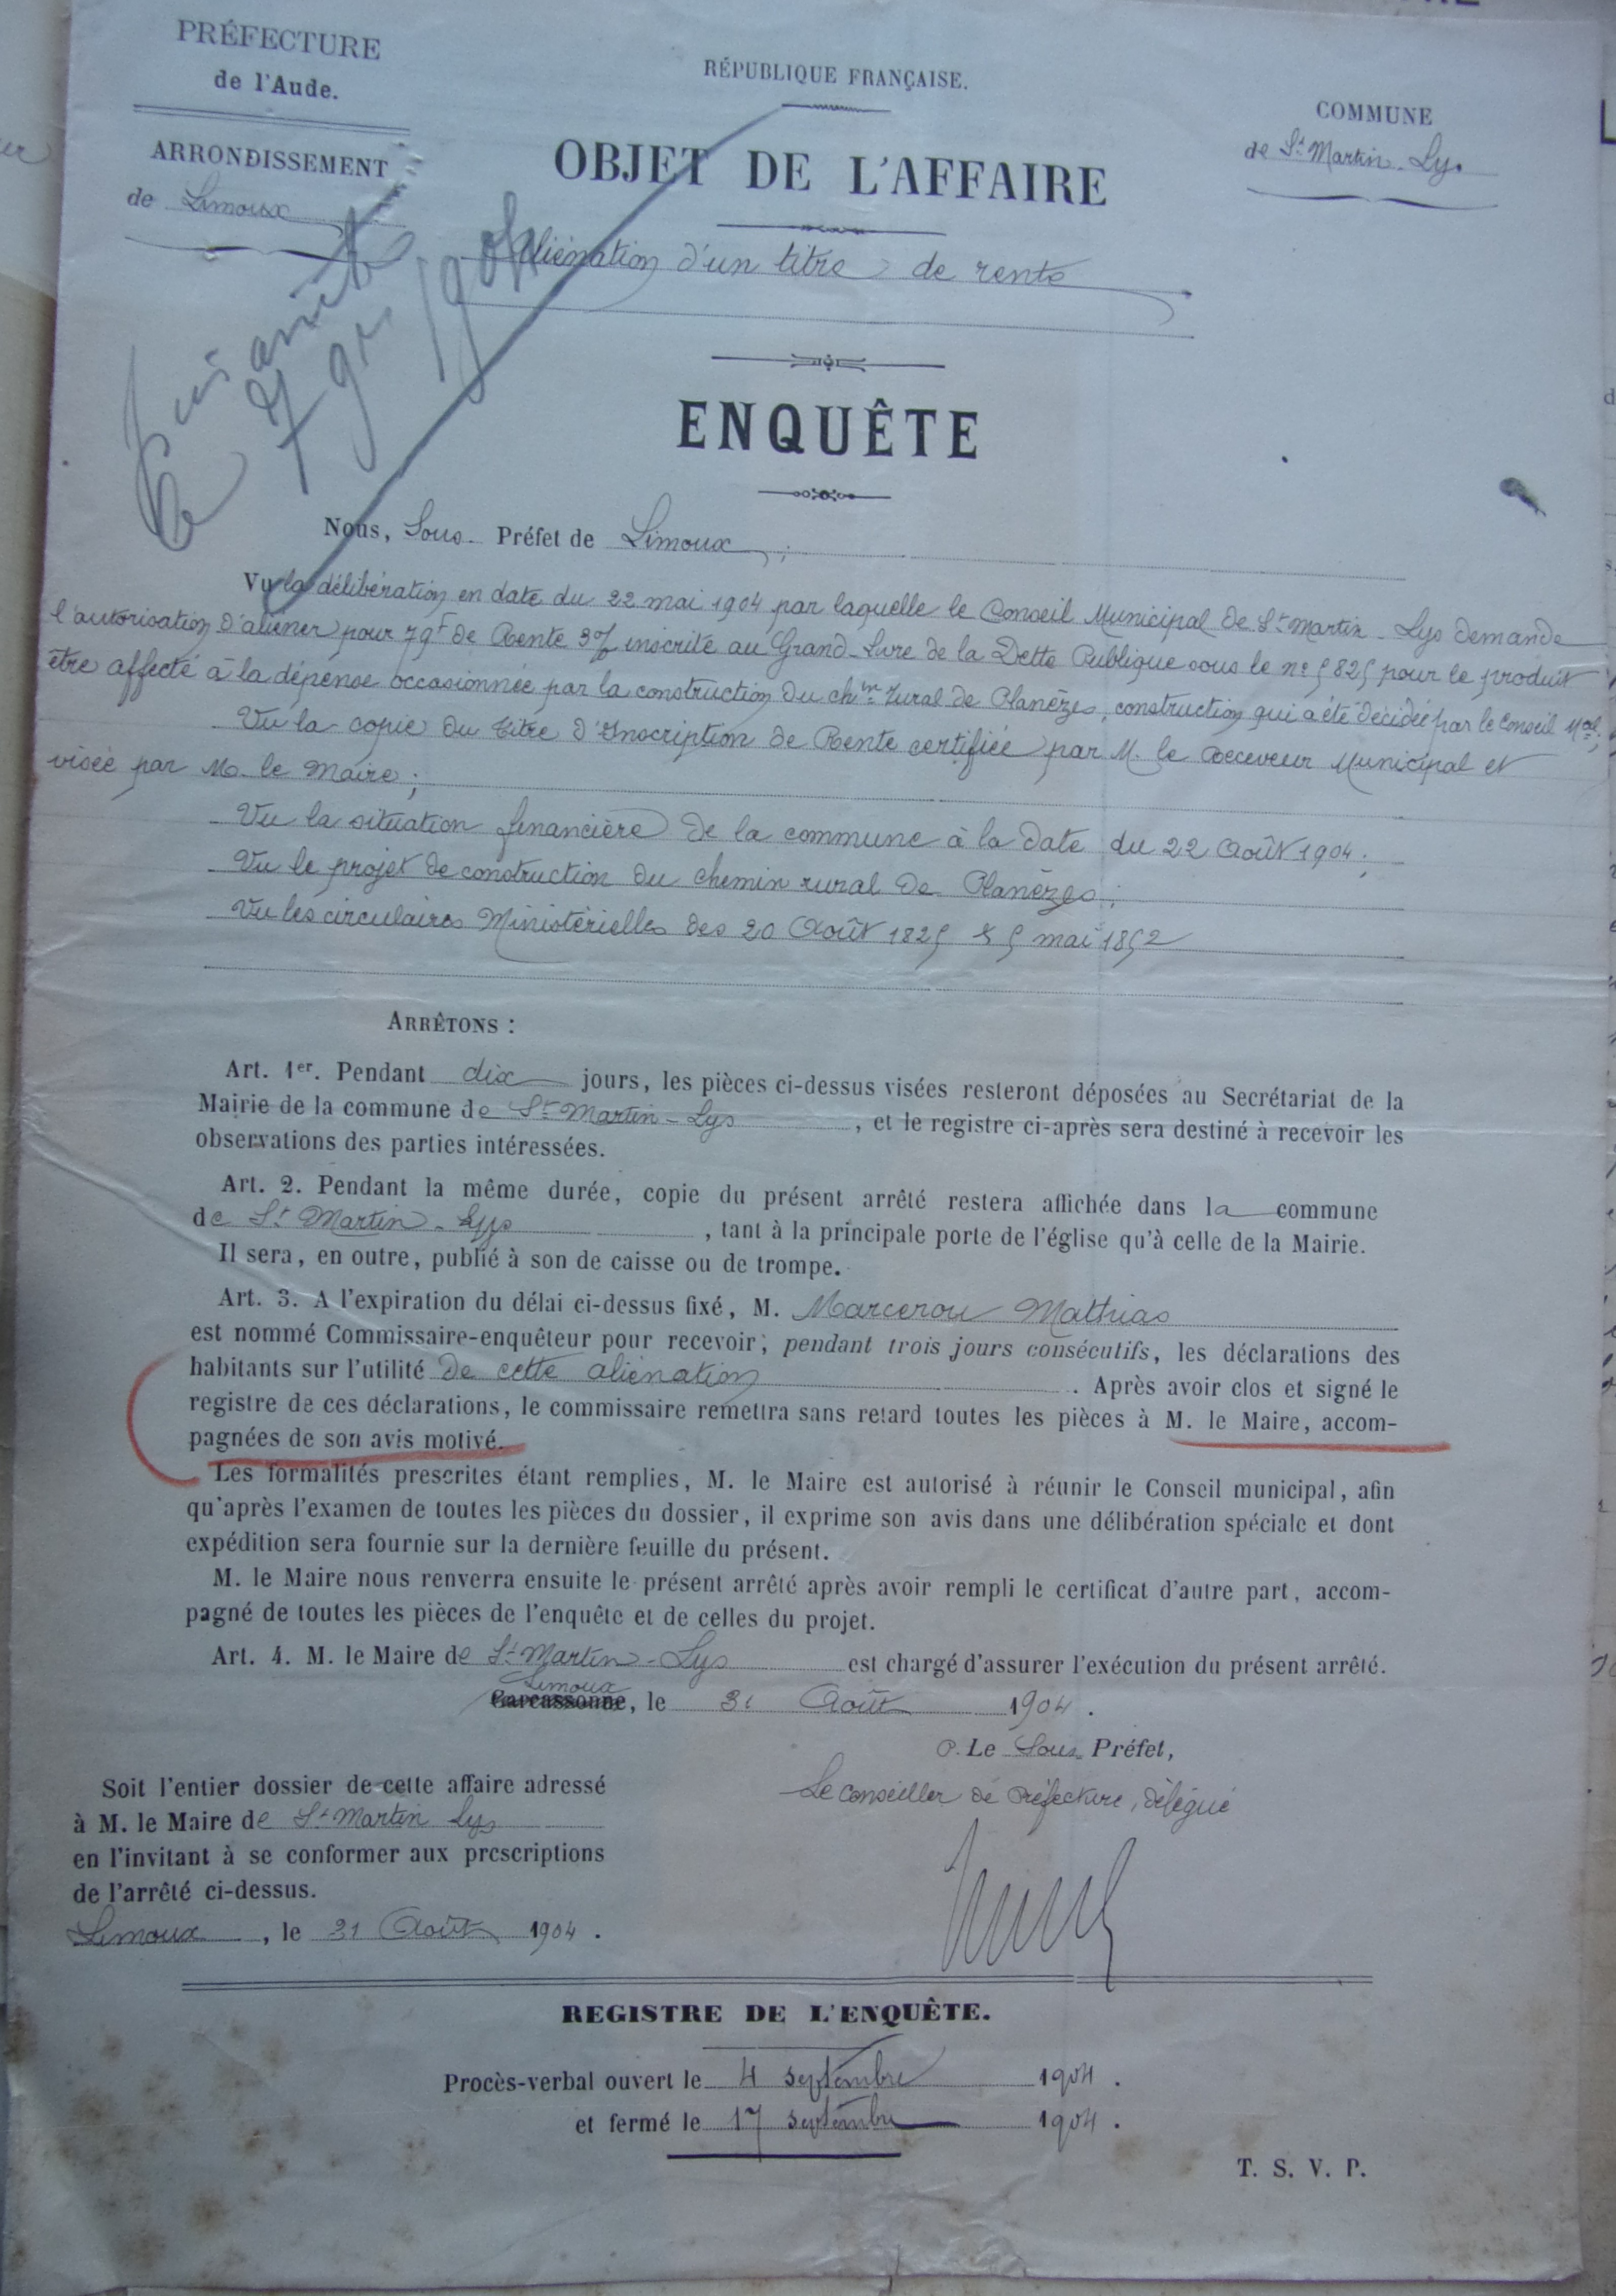 PRÉFECTURE
de l'Aude.
ARRONDISSEMENT
de Limoux
RÉPUBLIQUE FRANÇAISE.
COMMUNE
de St Martin-Lys
OBJET DE L'AFFAIRE
Aliénation d'un titre de rente
Puis arrêté
le 7 9bre 1904
ENQUÊTE
Nous, Sous-Préfet de Limoux,;
Vu la délibération en date du 22 mai 1904 par laquelle le Conseil Municipal de St Martin-Lys demande
l'autorisation d'aliéner pour 79f de Rente 3% inscrite au Grand-Livre de la Dette Publique sous le no 5825 pour le produit
être affecté à la dépense occasionnée par la construction du chin rural de Planèzes, construction qui a été décidée par le Conseil Mal;
Vu la copie du titre d'Inscription de Rente certifiée par M. le Receveur Municipal et
visée par M. le Maire;
Vu la situation financière de la commune à la date du 22 Août 1904;
Vu le projet de construction du chemin rural de Planèzes;
Vu les circulaires Ministérielles des 20 Août 1825 & 5 mai 1852
ARRÊTONS :
Art. 1er. Pendant dix jours, les pièces ci-dessus visées resteront déposées au Secrétariat de la
Mairie de la commune de St Martin-Lys, et le registre ci-après sera destiné à recevoir les
observations des parties intéressées.
Art. 2. Pendant la même durée, copie du présent arrêté restera affichée dans la commune
de St Martin-Lys, tant à la principale porte de l'église qu'à celle de la Mairie.
Il sera, en outre, publié à son de caisse ou de trompe.
Art. 3. A l'expiration du délai ci-dessus fixé, M. Marcerou Mathias
est nommé Commissaire-enquêteur pour recevoir, pendant trois jours consécutifs, les déclarations des
habitants sur l'utilité de cette aliénation. Après avoir clos et signé le
registre de ces déclarations, le commissaire remettra sans retard toutes les pièces à M. le Maire, accom-
pagnées de son avis motivé.
Les formalités prescrites étant remplies, M. le Maire est autorisé à réunir le Conseil municipal, afin
qu'après l'examen de toutes les pièces du dossier, il exprime son avis dans une délibération spéciale et dont
expédition sera fournie sur la dernière feuille du présent.
M. le Maire nous renverra ensuite le présent arrêté après avoir rempli le certificat d'autre part, accom-
pagné de toutes les pièces de l'enquête et de celles du projet.
Art. 4. M. le Maire de St Martin-Lys est chargé d'assurer l'exécution du présent arrêté.
Limoux
Carcassonne, le 31 Août 1904.
P. Le Sous-Préfet,
Le Conseiller de Préfecture, délégué
Soit l'entier dossier de cette affaire adressé
à M. le Maire de St Martin Lys
en l'invitant à se conformer aux prescriptions
de l'arrêté ci-dessus.
Limoux, le 31 Août 1904.
REGISTRE DE L'ENQUÊTE.
Procès-verbal ouvert le 4 septembre 1904.
et fermé le 17 septembre 1904.
T. S. V. P.